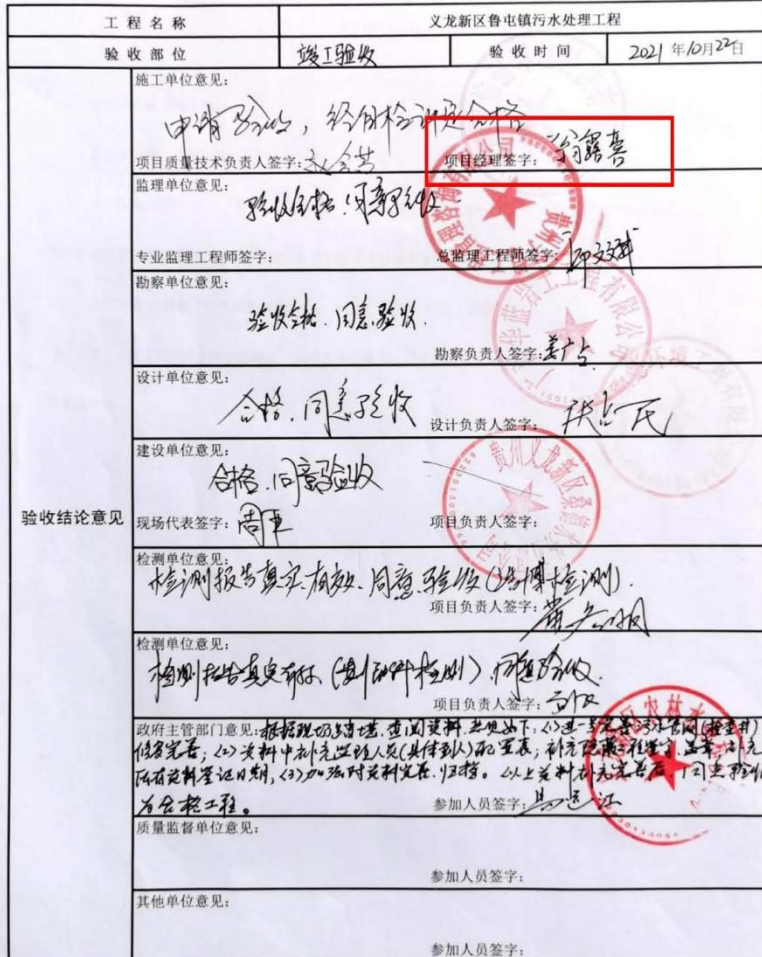 工程名称 义龙新区鲁屯镇污水处理工程
验收部位 竣工验收 验收时间 2021年10月22日
验收结论意见
施工单位意见：
申请验收，经自检评定合格
项目质量技术负责人签字： 项目经理签字：翁露亮
监理单位意见：
验收合格.同意验收
专业监理工程师签字： 总监理工程师签字：
勘察单位意见：
验收合格.同意验收.
勘察负责人签字：姜广占
设计单位意见：
合格.同意验收
设计负责人签字：
建设单位意见：
合格.同意验收
现场代表签字：周亚 项目负责人签字：
检测单位意见：
检测报告真实有效.同意验收(浩博检测).
项目负责人签字：
检测单位意见：
检测报告真实有效.同意验收
项目负责人签字：
政府主管部门意见：根据现场踏勘，查阅资料，意见如下：(1)进一步完善污水管网(检查井)
修复完善；(2)资料中补充监理人员(具体到人)配置表，补充隐蔽工程签字盖章，补充
所有资料登记日期，(3)加强对资料完善、归档。以上资料补充完善后，同意验收
为合格工程。
参加人员签字：
质量监督单位意见：
参加人员签字：
其他单位意见：
参加人员签字：